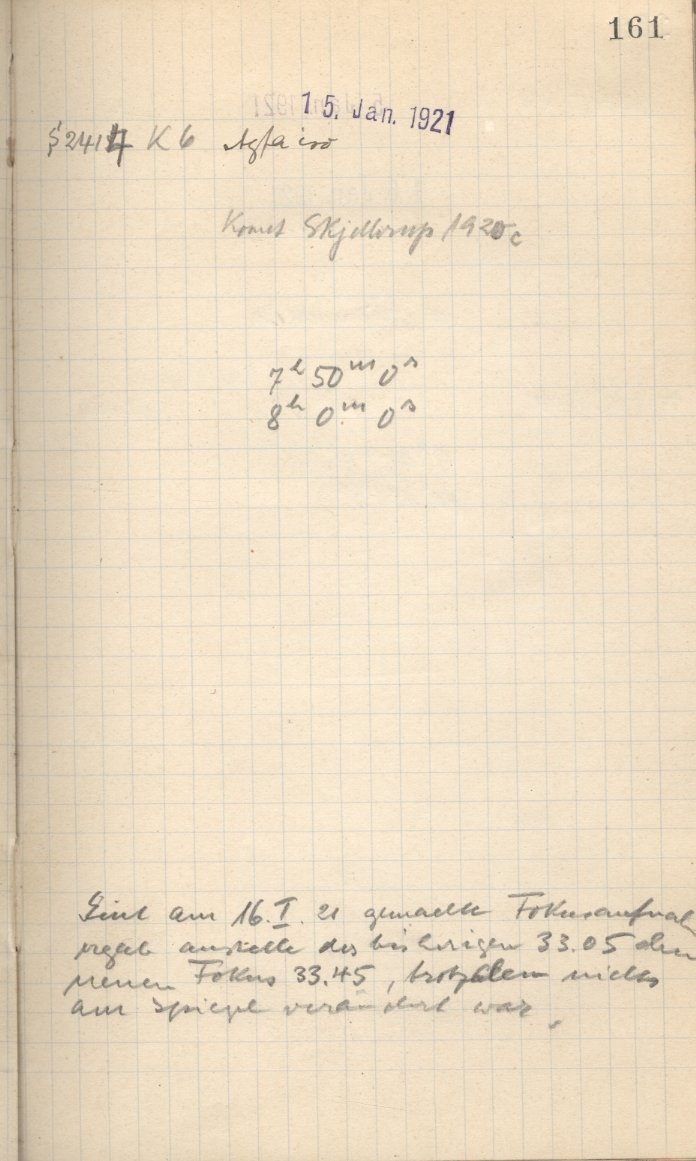 161
15. Jan. 1921
S2414 K6 Agfa iso
Komet Skjellerup 1920c
7h 50m 0s
8h 0m 0s
Eine am 16.I.21 gemachte Fokusaufnah
ergab anstelle des bisherigen 33.05 den
neuen Fokus 33.45, trotzdem nichts
am Spiegel verändert war.